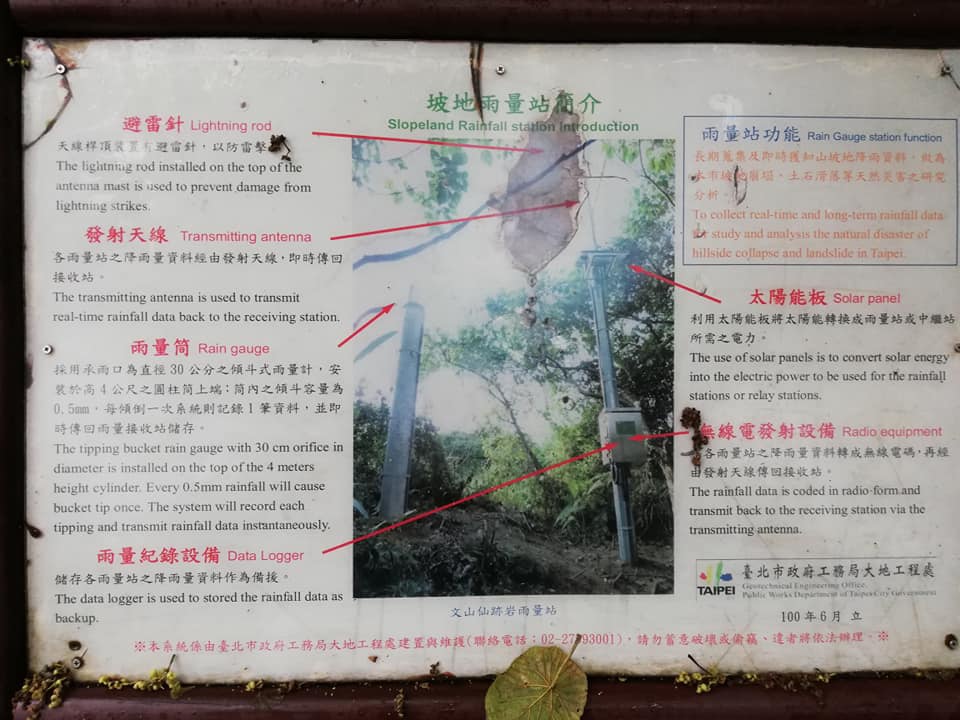 坡地雨量站簡介
Slopeland Rainfall station Introduction
避雷針 Lightning rod
天線桿頂裝置有避雷針，以防雷擊
The lightning rod installed on the top of the
antenna mast is used to prevent damage from
lightning strikes.
發射天線 Transmitting antenna
各雨量站之降雨量資料經由發射天線，即時傳回
接收站。
The transmitting antenna is used to transmit
real-time rainfall data back to the receiving station.
雨量筒 Rain gauge
採用承雨口為直徑 30 公分之傾斗式雨量計，安
裝於高 4 公尺之圓柱筒上端；筒內之傾斗容量為
0.5mm，每傾倒一次系統則記錄 1 筆資料，並即
時傳回雨量接收站儲存。
The tipping bucket rain gauge with 30 cm orifice in
diameter is installed on the top of the 4 meters
height cylinder. Every 0.5mm rainfall will cause
bucket tip once. The system will record each
tipping and transmit rainfall data instantaneously.
雨量紀錄設備 Data Logger
儲存各雨量站之降雨量資料作為備援。
The data logger is used to stored the rainfall data as
backup.
文山仙跡岩雨量站
雨量站功能 Rain Gauge station function
長期蒐集及即時獲知山坡地降雨資料，做為
本市坡地崩塌、土石滑落等天然災害之研究
分析。
To collect real-time and long-term rainfall data
for study and analysis the natural disaster of
hillside collapse and landslide in Taipei.
太陽能板 Solar panel
利用太陽能板將太陽能轉換成雨量站或中繼站
所需之電力。
The use of solar panels is to convert solar energy
into the electric power to be used for the rainfall
stations or relay stations.
無線電發射設備 Radio equipment
各雨量站之降雨量資料轉成無線電碼，再經
由發射天線傳回接收站。
The rainfall data is coded in radio-form and
transmit back to the receiving station via the
transmitting antenna.
TAIPEI
臺北市政府工務局大地工程處
Geotechnical Engineering Office,
Public Works Department of Taipei City Government
100 年 6 月 立
※本系統係由臺北市政府工務局大地工程處建置與維護(聯絡電話：02-27593001)，請勿蓄意破壞或偷竊、違者將依法辦理。※